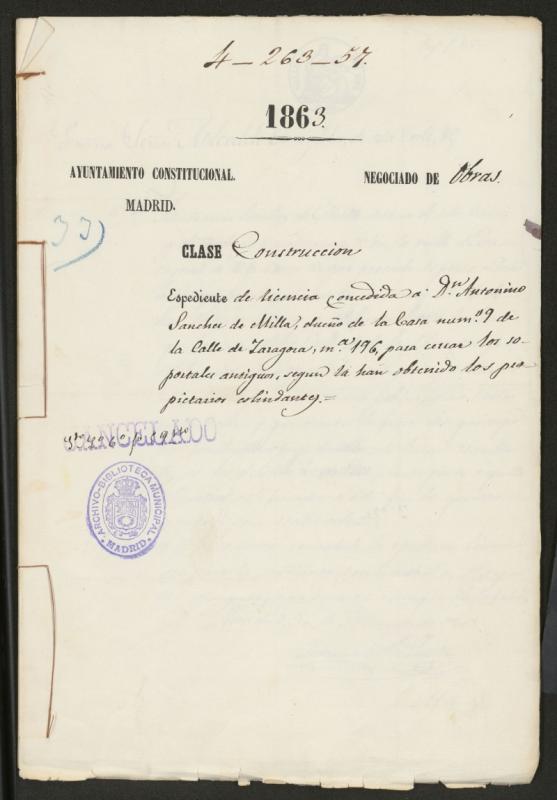 4-263-57.
1863.
AYUNTAMIENTO CONSTITUCIONAL.
MADRID.
NEGOCIADO DE Obras.
33)
CLASE Construccion
Espediente de licencia concedida á Dn. Antonino
Sanchez de Milla, dueño de la Casa num.º 9 de
la Calle de Zaragoza, m.ª 196, para cerrar los so-
portales antiguos, segun la han obtenido los pro-
pietarios colindantes.=
CANCELADO
ARCHIVO-BIBLIOTECA MUNICIPAL
MADRID.